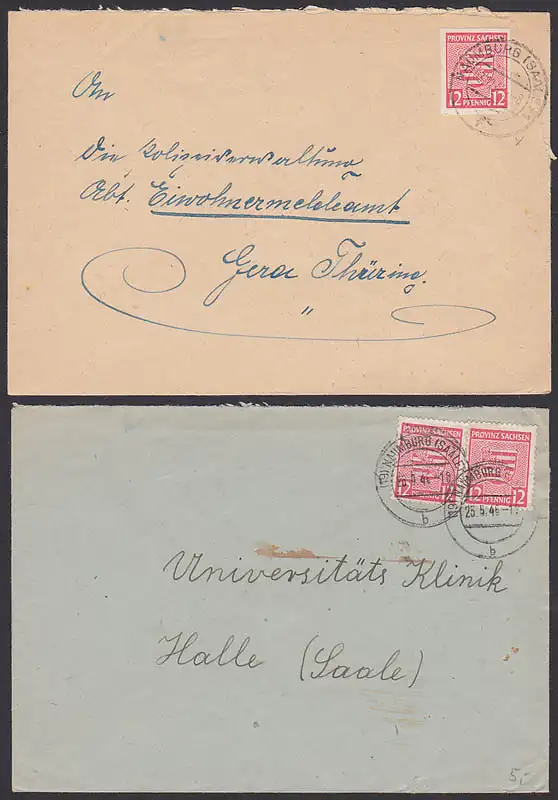 PROVINZ SACHSEN
12 PFENNIG 12
NAUMBURG (SAALE)
An
die Polizeiverwaltung
Abt. Eiwohnermeldeamt
Gera Thüring.
"
PROVINZ SACHSEN PROVINZ SACHSEN
12 12 12
(19) NAUMBURG (SAALE) NAUMBURG
25.5.46-18 25.5.46-18
b b
Universitäts Klinik
Halle (Saale)
5,-